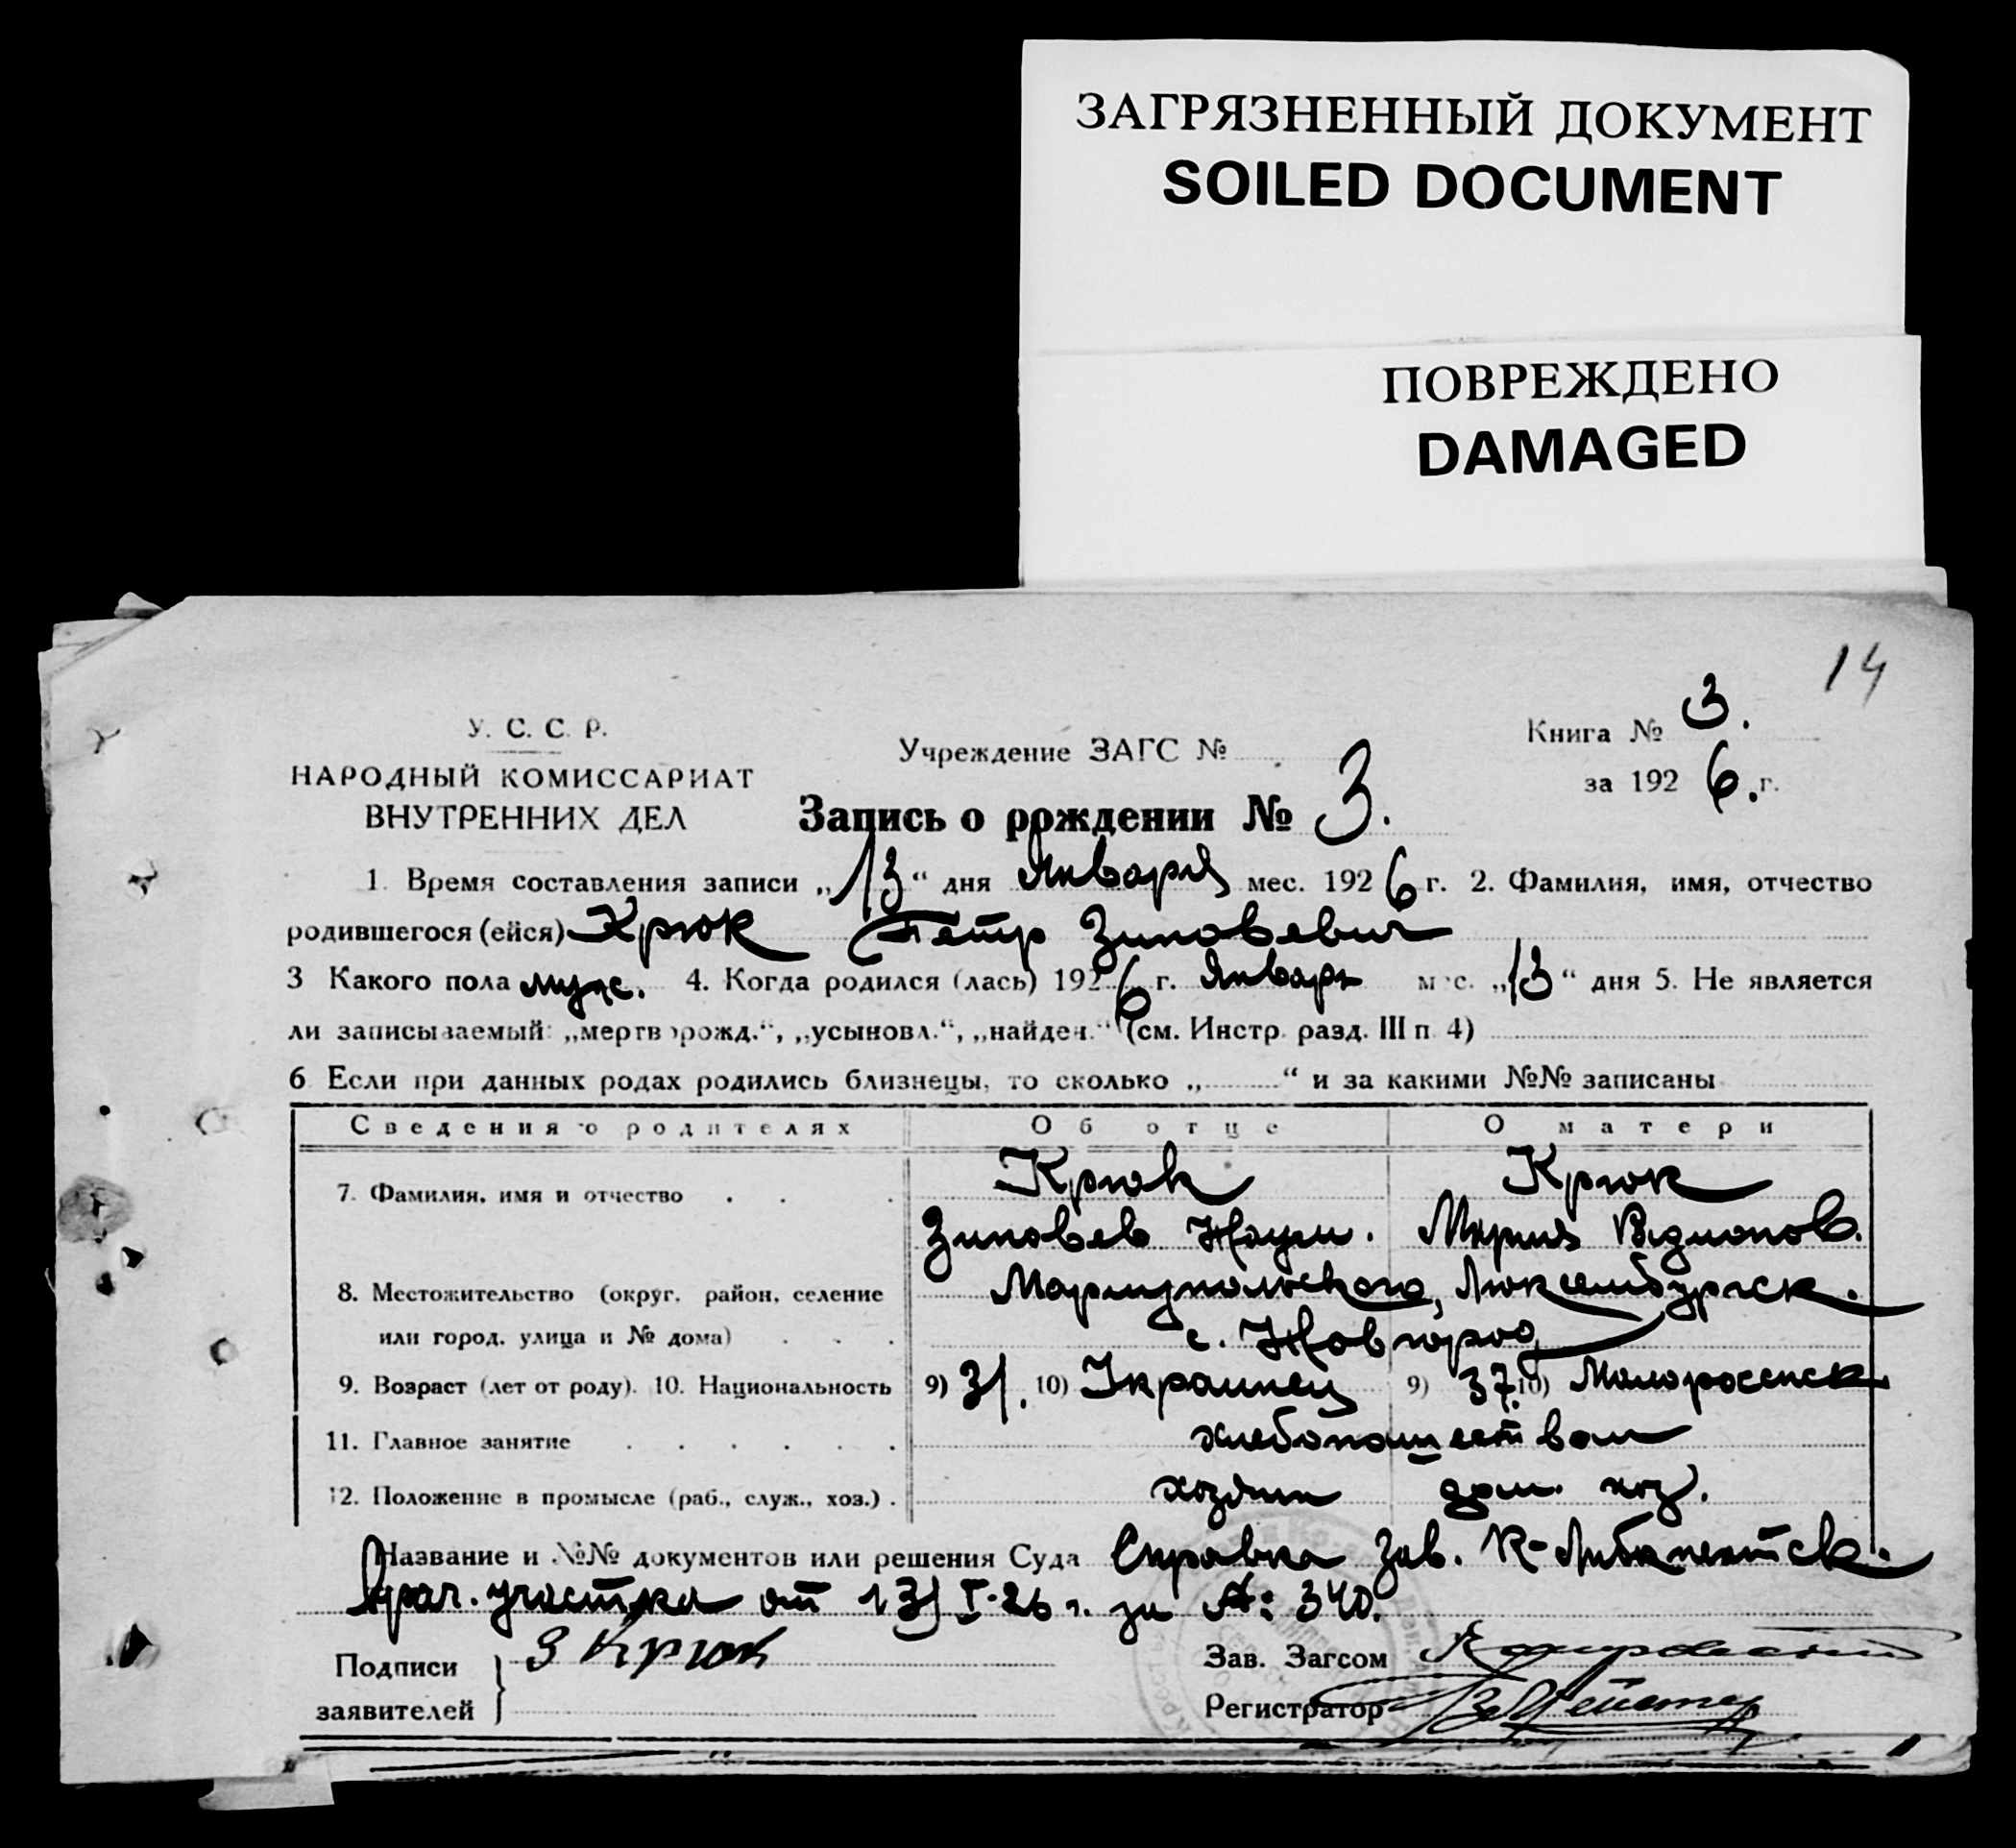 ЗАГРЯЗНЕННЫЙ ДОКУМЕНТ
SOILED DOCUMENT
ПОВРЕЖДЕНО
DAMAGED
14
У. С. С. Р.
НАРОДНЫЙ КОМИССАРИАТ
ВНУТРЕННИХ ДЕЛ
Учреждение ЗАГС №
Книга № 3.
за 1926. г.
Запись о рождении № 3.
1. Время составления записи „13“ дня Января мес. 1926 г. 2. Фамилия, имя, отчество
родившегося (ейся) Крюк Петр Зиновьевич
3 Какого пола муж. 4. Когда родился (лась) 1926 г. Январь мес. „13“ дня 5. Не является
ли записываемый: „мертворожд.“, „усыновл.“, „найден.“ (см. Инстр. разд. III п 4)
6 Если при данных родах родились близнецы, то сколько „ “ и за какими №№ записаны
Сведения о родителях Об отце О матери
7. Фамилия, имя и отчество Крюк Крюк
Зиновьев Наум. Мария
8. Местожительство (округ, район, селение Мариупольского, Люксембургск.
или город, улица и № дома) с. Новгород
9. Возраст (лет от роду). 10. Национальность 9) 31. 10) Украинец 9) 37. 10) Малоросийск
11. Главное занятие хлебопашеством
12. Положение в промысле (раб., служ., хоз.) хозяин дом. хоз.
Название и №№ документов или решения Суда Справка Зав.
Врач. участка от 13/I-26 г. за №: 340.
Подписи заявителей З Крюк
Зав. Загсом
Регистратор